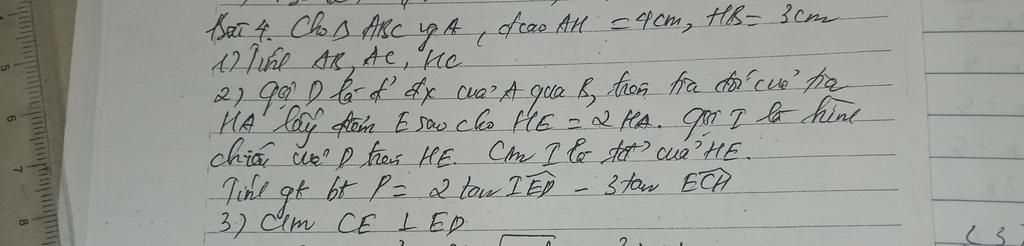 Bài 4. Cho Δ ABC vg A, đcao AH = 4cm, HB = 3cm
1) Tính AB, AC, HC
2) gọi D là đ' đx của A qua B, trên tia đối của tia
HA lấy điểm E sao cho HE = 2 HA. gọi I là hình
chiếu của D trên HE. Cm I là tđ' của HE.
Tính gt bt P = 2 tan IED - 3 tan ECH
3) Cm CE ⊥ ED
5
6
7
8